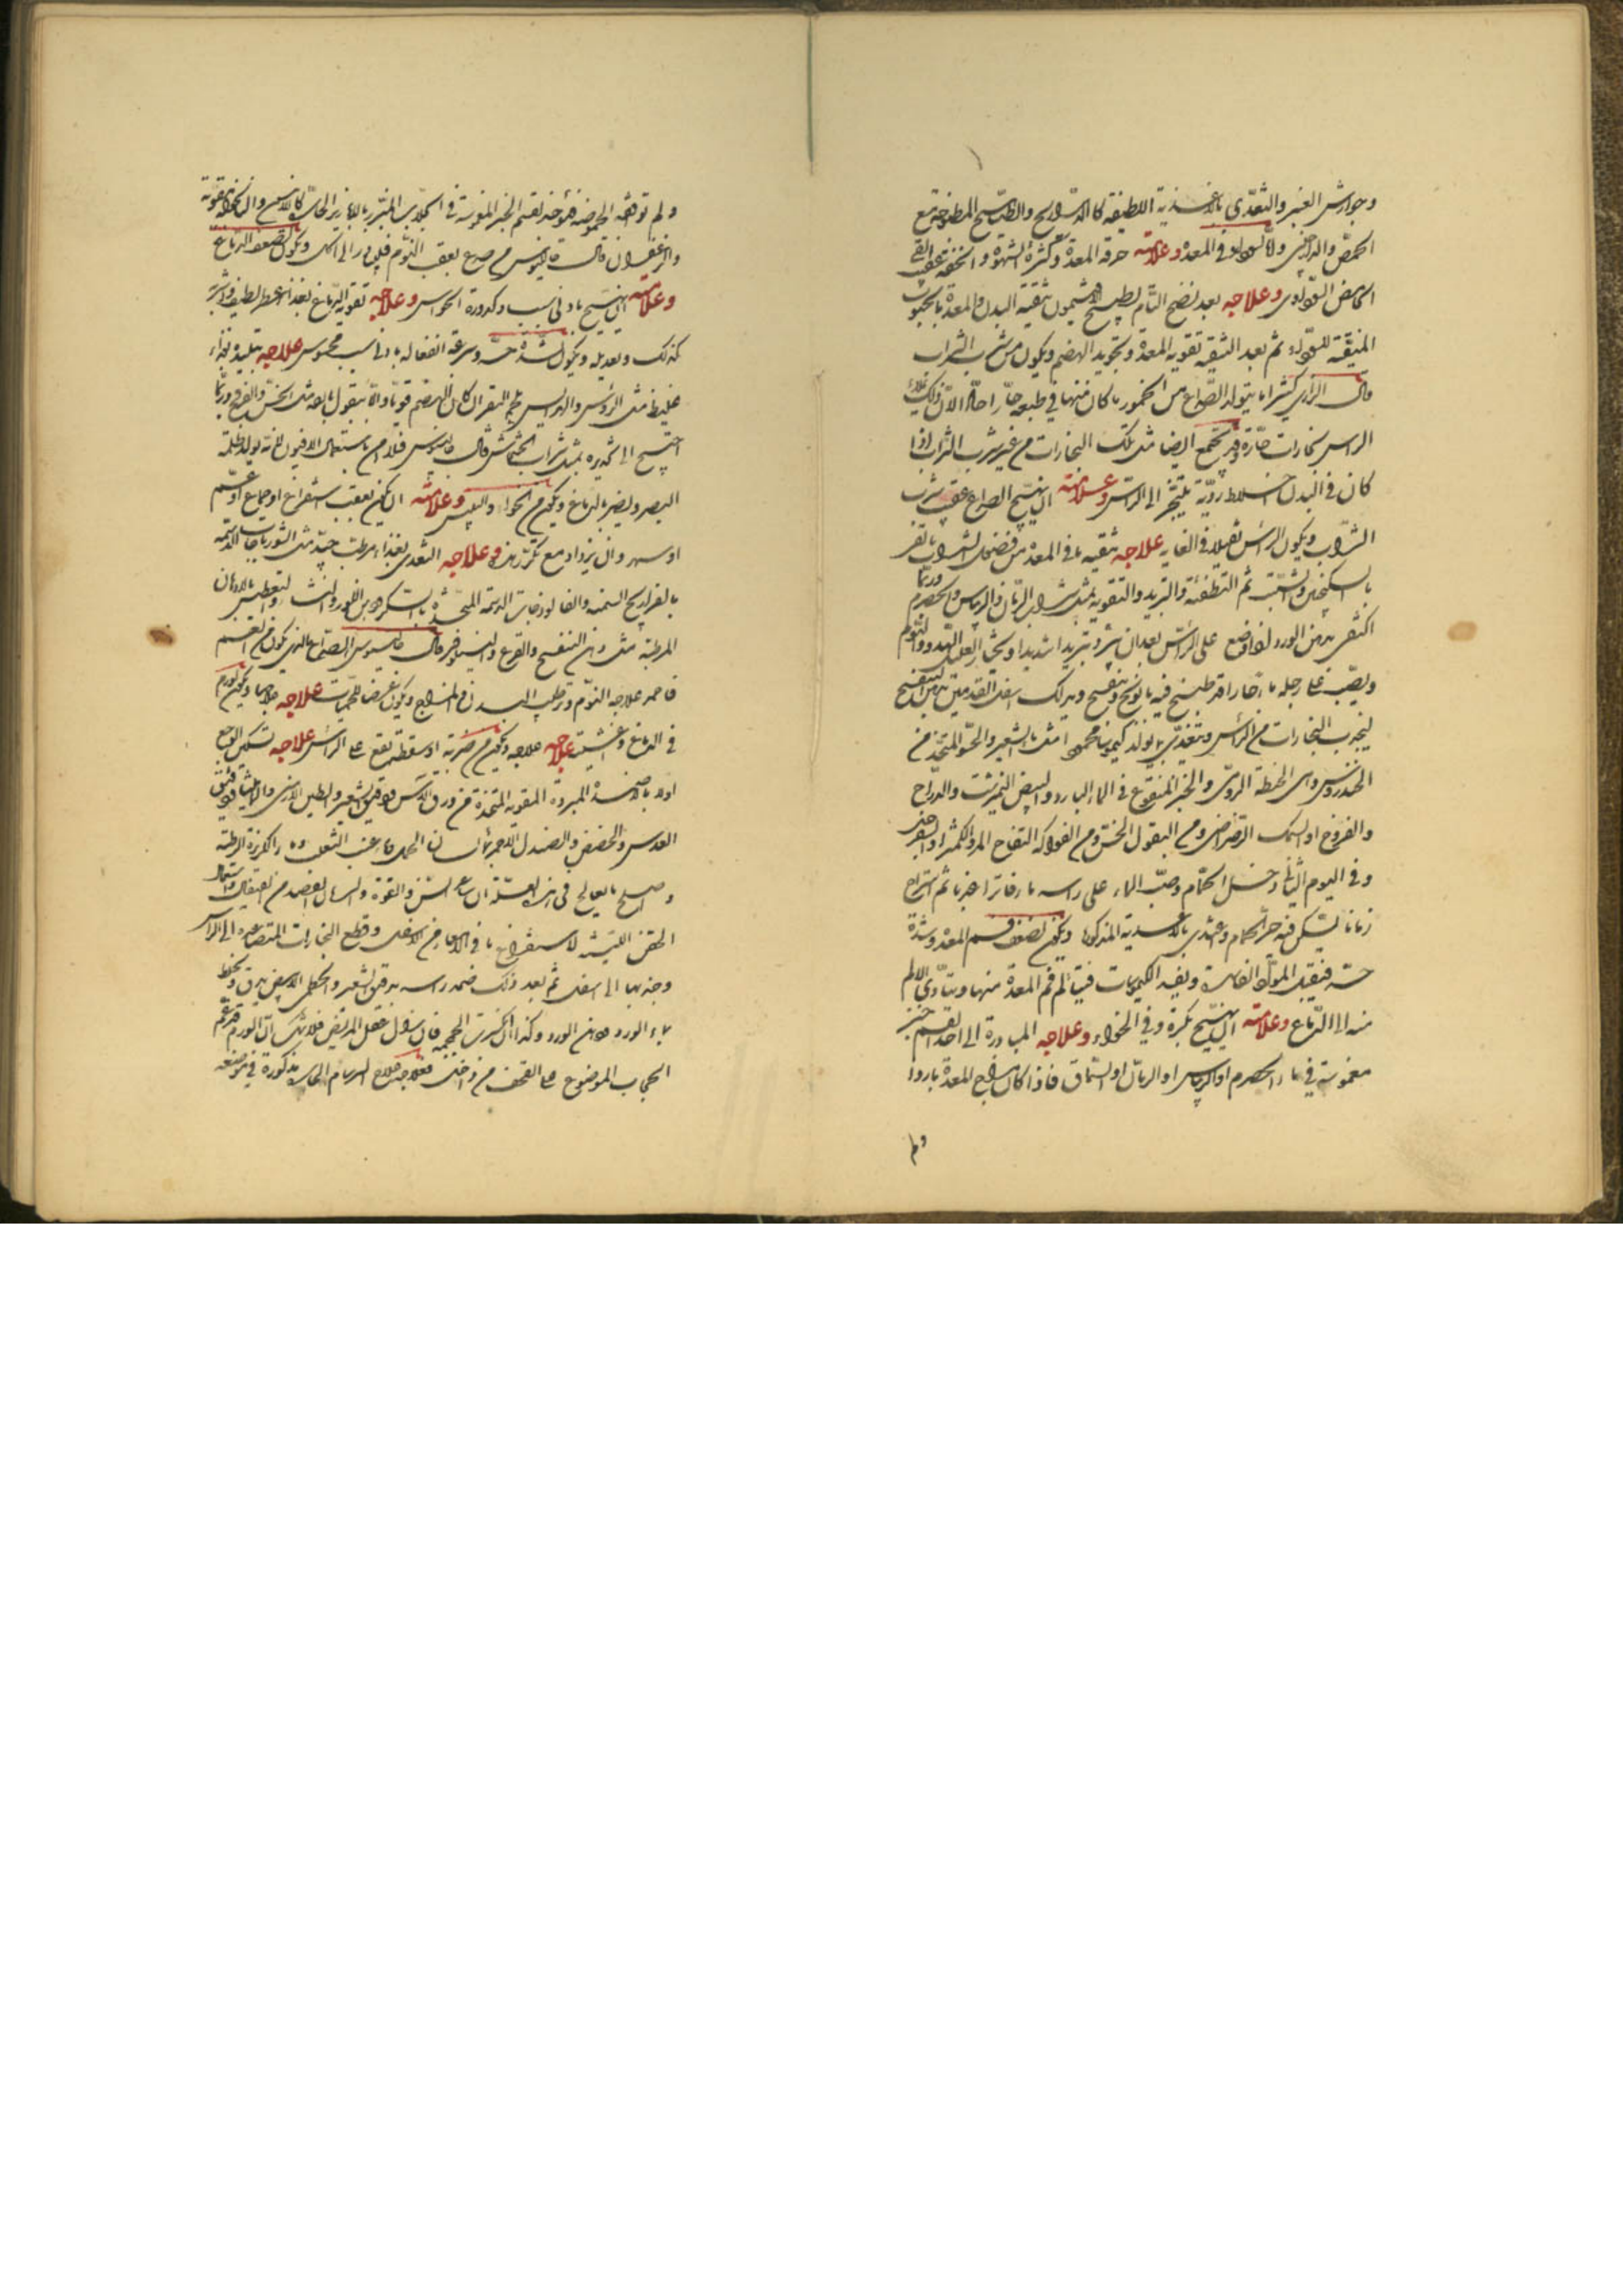 وجوارش العنبر والتغذي بالاغذية اللطيفة كالدراريج والطياهيج المطبوخة مع
الحمص والدارچيني واما لسوداء في المعدة وعلامته حرقة المعدة وكثرة الشهوة وانخفته عقيب القي
الحامض السوداوي وعلاجه بعد نضج التام بطبيخ الافتيمون تنقية البدن والمعدة بالحبوب
المنقية للسوداء ثم بعد التنقية تقوية المعدة وتجويد الهضم ويكون من شرب الشراب
قال الرازي كثيرا ما يتولد الصداع من الخمور ما كان منها في طبعه حارا حادا لان ذلك يملأ
الراس بخارات حارة وقد تجمع ايضا مثل تلك البخارات من غير شرب الشراب اذا
كان في البدن اخلاط ردية يتبخر الى الراس وعلامته ان يهيج الصداع عقيب شرب
الشراب ويكون الراس ثقيلا في الغاية علاجه تنقية ما في المعدة من فضل الشراب بالقي
بالسكنجبين والشبت ثم التطفئة والتبريد والتقوية بمثل شراب الرمان والريباس والحصرم وربما
اكتفي بدهن الورد اذا وضع على الراس بعد ان يبرد تبريدا شديدا ويختار العليل الهدو والنوم
ويصب على رجله ماء حار اقد طبخ فيه بابونج وبنفسج ويدلك اسفل القدمين بدهن البنفسج
ليجذب البخارات من الراس ويتغذى بما يولد كيموسا محمودا مثل ماء الشعير والحسو المتخذ من
الخندروس وهى الحنطة الرومى والخبز المنقوع في الماء البارد والبيض النيمرشت والدراج
والفروخ او السمك الرضراضى ومن البقول الخس ومن الفواكه التفاح المز والكمثرا والسفرجل
وفي اليوم الثاني دخل الحمام وصب الماء على راسه ماء فاترا عذبا ثم استراح
زمانا لتسكن فيه حر الحمام واغتدى بالاغذية المذكورة ويكون لضعف فم المعدة وشدة
حسه فيقبل المواد الفاسدة ويفسد الكيموسات فيتألم فم المعدة منها ويتأدى الالم
منه الى الدماغ وعلامته ان يهيج بكرة وفي الخواء وعلاجه المبادرة الى اخذ لقم خبز
مغموسة في ماء الحصرم او الريباس او الرمان او السماق فاذا كان مزاج المعدة باردا
ولم
ولم توافقه الحموضة فيوخذ لقم الخبز المغموسة في الجلاب المبزر بالابازير الحارة كالانيسون والنانخواه
والزعفران قال جالينوس من صدع بعقب النوم فليبادر الى الاكل ويكون لضعف الدماغ
وعلامته ان يهيج بادنى سبب وكدورة الحواس وعلاجه تقوية الدماغ بغذاء عطر لطيف واشربة
كذلك وتعديله ويكون لشدة حسه وسرعة انفعاله بادنى سبب محسوس علاجه تبليده بغذاء
غليظ مثل الرؤس والهرايس بلحم البقر ان كان الهضم قويا والا بقول مايعه مثل الخس والقرع وربما
احتيج الى تخديره بمثل شراب الخشخاش قال جالينوس فلا من باستعمال الافيون لانه يولد ظلمة
البصر ويضر بالدماغ ويكون من الخواء واليبس وعلامته ان يكون بعقب استفراغ او جماع او غم
او سهر وان يزداد مع تكرر هذه وعلاجه التغذي بغذاء مرطب جيد مثل الشورباجات الدسمة
بالفراريج السمينة والفالوذجات الدسمة المتخذة بالسكر ودهن اللوز والنشا والتعطيس بالادهان
المرطبة مثل دهن البنفسج والقرع والنيلوفر قال جالينوس الصداع الذي يكون من الغم
فاحمد علاجه النوم وترطيب البدن والمزاج ويكون عرضا للحميات علاجه علاجها ويكون لورم
في الدماغ واغشيته علاجه علاجه ويكون من ضربة او سقطة تقع على الراس علاجه تسكين الوجع
اولا بالاضمدة المبردة المقوية المتخذة من ورق الآس ودقيق الشعير والطين الارمنى والماميثا ودقيق
العدس والحضض والصندل الاحمر بلسان الحمل وماء عنب الثعلب وماء الكزبرة الرطبة
واصلح ما يعالج في هذه العلة ان ساعد السن والقوة والاسهال الفصد من القيفال واستعمال
الحقن اللينة لاستفراغ ما في الامعاء من الاسفل وقطع البخارات المتصاعدة الى الراس
وجذبها الى اسفل ثم بعد ذلك ضمد راسه بدقيق الشعير والخطمى الابيض يدق ويخلط
بماء الورد ودهن الورد وكذا ان انكسرت الجمجمة فان زال عقل المريض فلا شك ان الورم قد وقع
الحجاب الموضوع على القحف من داخل فعلاجه علاج السرسام الحار مذكورة في موضعه